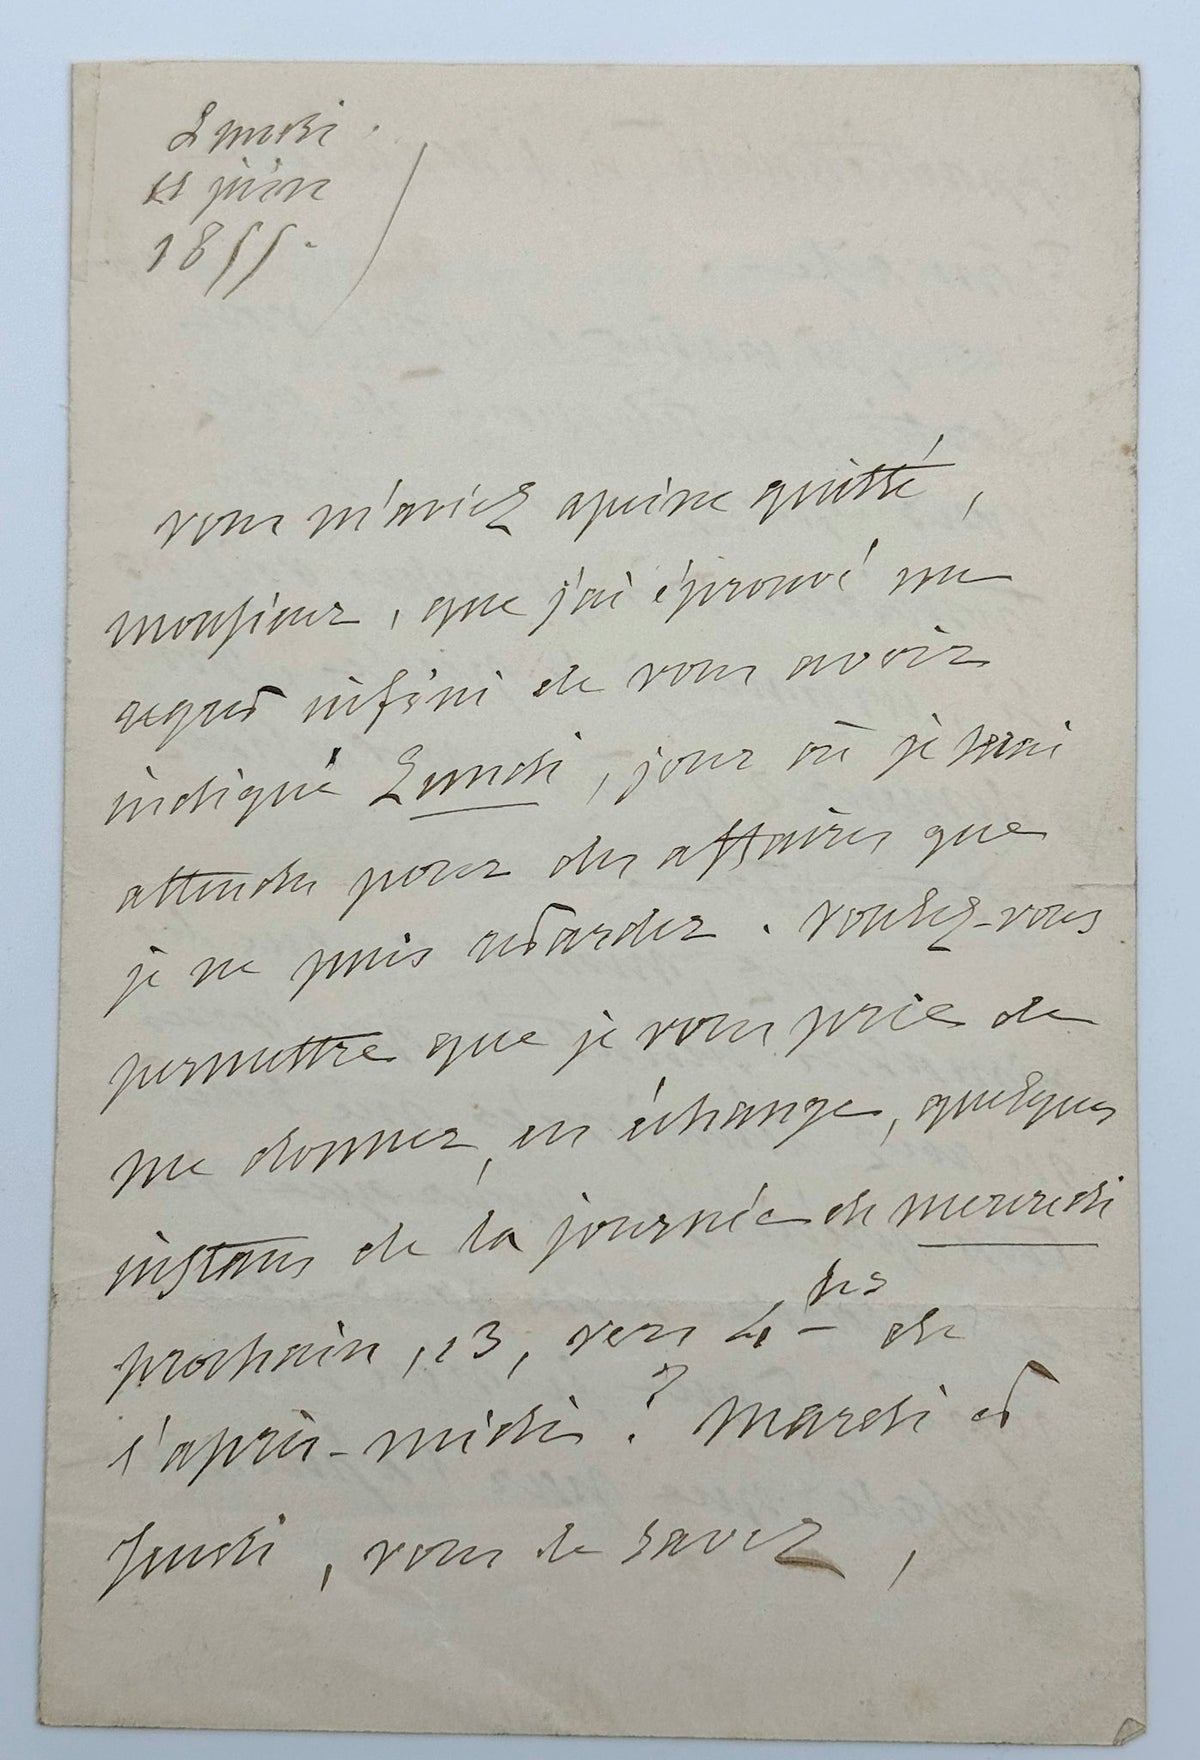 Lundi
11 juin
1855.
vous m'aviez apeine quitté,
monsieur, que j'ai éprouvé un
regret infini de vous avoir
indiqué Lundi, jour où je serai
attendu pour des affaires que
je ne puis retarder. voulez-vous
permettre que je vous prie de
me donner, en échange, quelques
instans de la journée de mercredi
prochain, 13, vers 4 hes de
l'après-midi ? Mardi et
Jeudi, vous le savez,